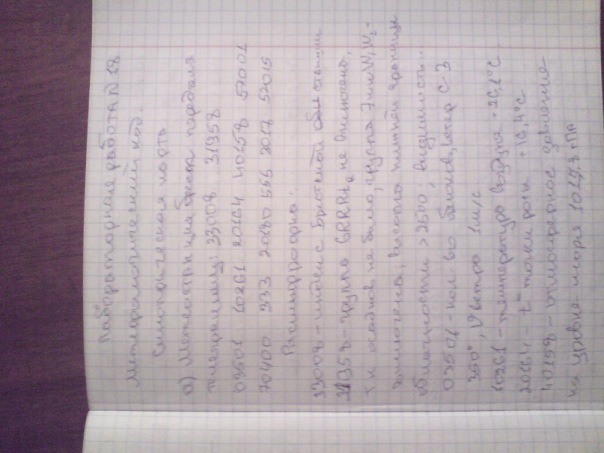 Лабораторная работа № 18
Метеорологический код.
Синоптическая карта
а) Метеостанция Брест передала
телеграмму: 33008 31958
03501 10261 20164 40158 52001
70400 333 20180 555 52015
Расшифровка:
33008 - индекс Брестской станции
31958 - группа 6RRRtR не включено,
т.к осадков не было, группа 7wwW1W2 -
включена, высота нижней границы
облачности >2500, видимость
03501 - кол-во облаков, ветер С-З
350°, V ветра 1 м/с
10261 - температура воздуха +26,1°С
20164 - t° точки росы +16,4°С
40158 - атмосферное давление
на уровне моря 1015,8 гПа